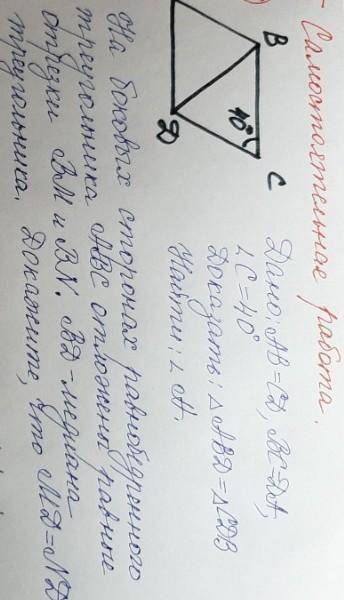 Самостоятельная работа.
Дано: AB=CD, BC=DA,
∠C=40°
Доказать: △ABD=△CDB
Найти: ∠A.
B
C
40°
D
На боковых сторонах равнобедренного
треугольника ABC отложены равные
отрезки BM и BN. BD-медиана
треугольника. Докажите, что MD=ND